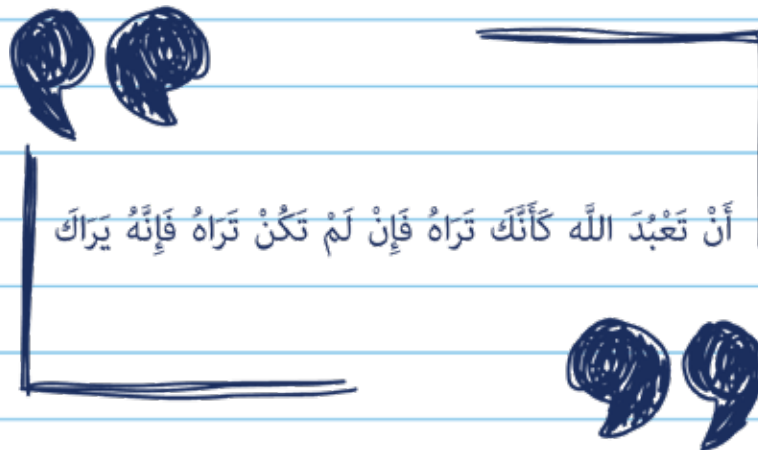 أَنْ تَعْبُدَ اللَّه كَأَنَّكَ تَرَاهُ فَإِنْ لَمْ تَكُنْ تَرَاهُ فَإِنَّهُ يَرَاكَ